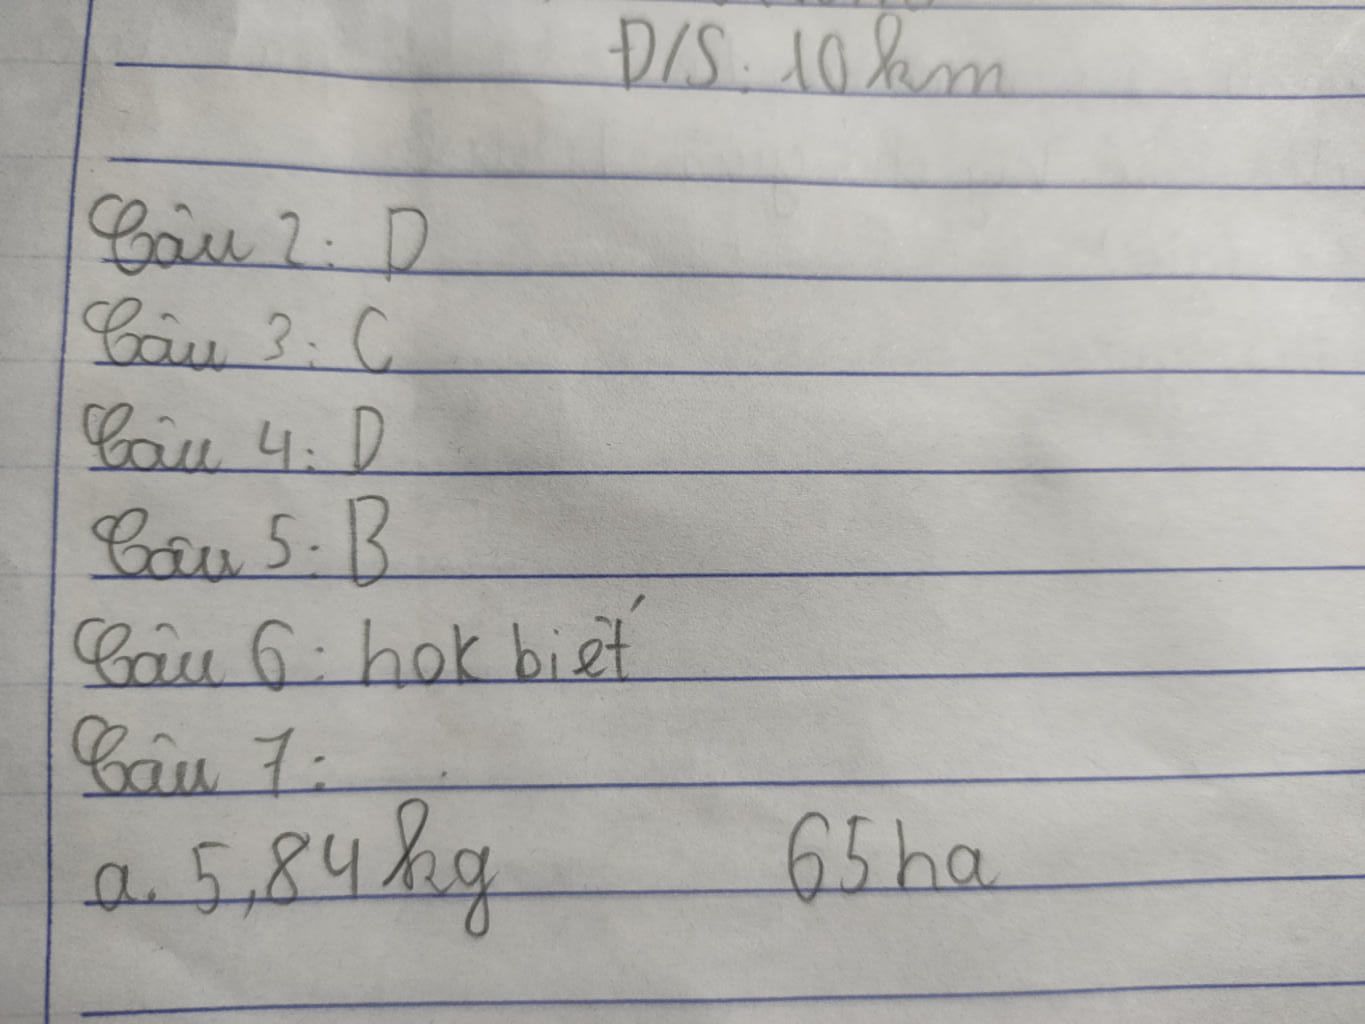 Đ/S: 10 km
Câu 2: D
Câu 3: C
Câu 4: D
Câu 5: B
Câu 6: hok biết
Câu 7:
a. 5,84 kg 65 ha